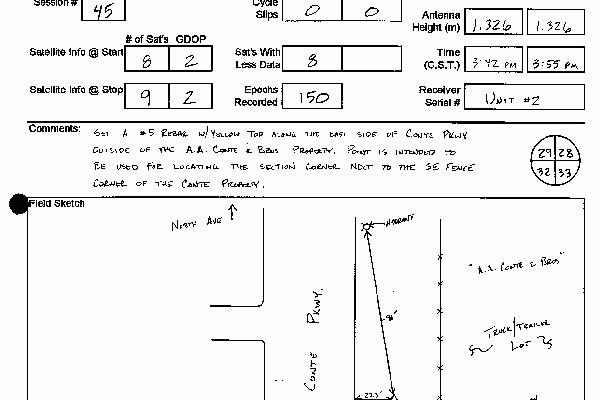 Session # 45 Cycle Slips 0 0 Antenna Height (m) 1.326 1.326
# of Sat's GDOP
Satellite Info @ Start 8 2 Sat's With Less Data 8 Time (C.S.T.) 3:42 PM 3:55 PM
Satellite Info @ Stop 9 2 Epochs Recorded 150 Receiver Serial # Unit #2
Comments: SET A #5 REBAR W/YELLOW TOP ALONG THE EAST SIDE OF CONTE PKWY
OUTSIDE OF THE A.A. CONTE & BROS PROPERTY. POINT IS INTENDED TO
BE USED FOR LOCATING THE SECTION CORNER NEXT TO THE SE FENCE
CORNER OF THE CONTE PROPERTY.
29 28
32 33
Field Sketch
NORTH AVE
HYDRANT
"A.A. CONTE & BROS"
CONTE PKWY.
TRUCK/TRAILER
LOT
22.3'